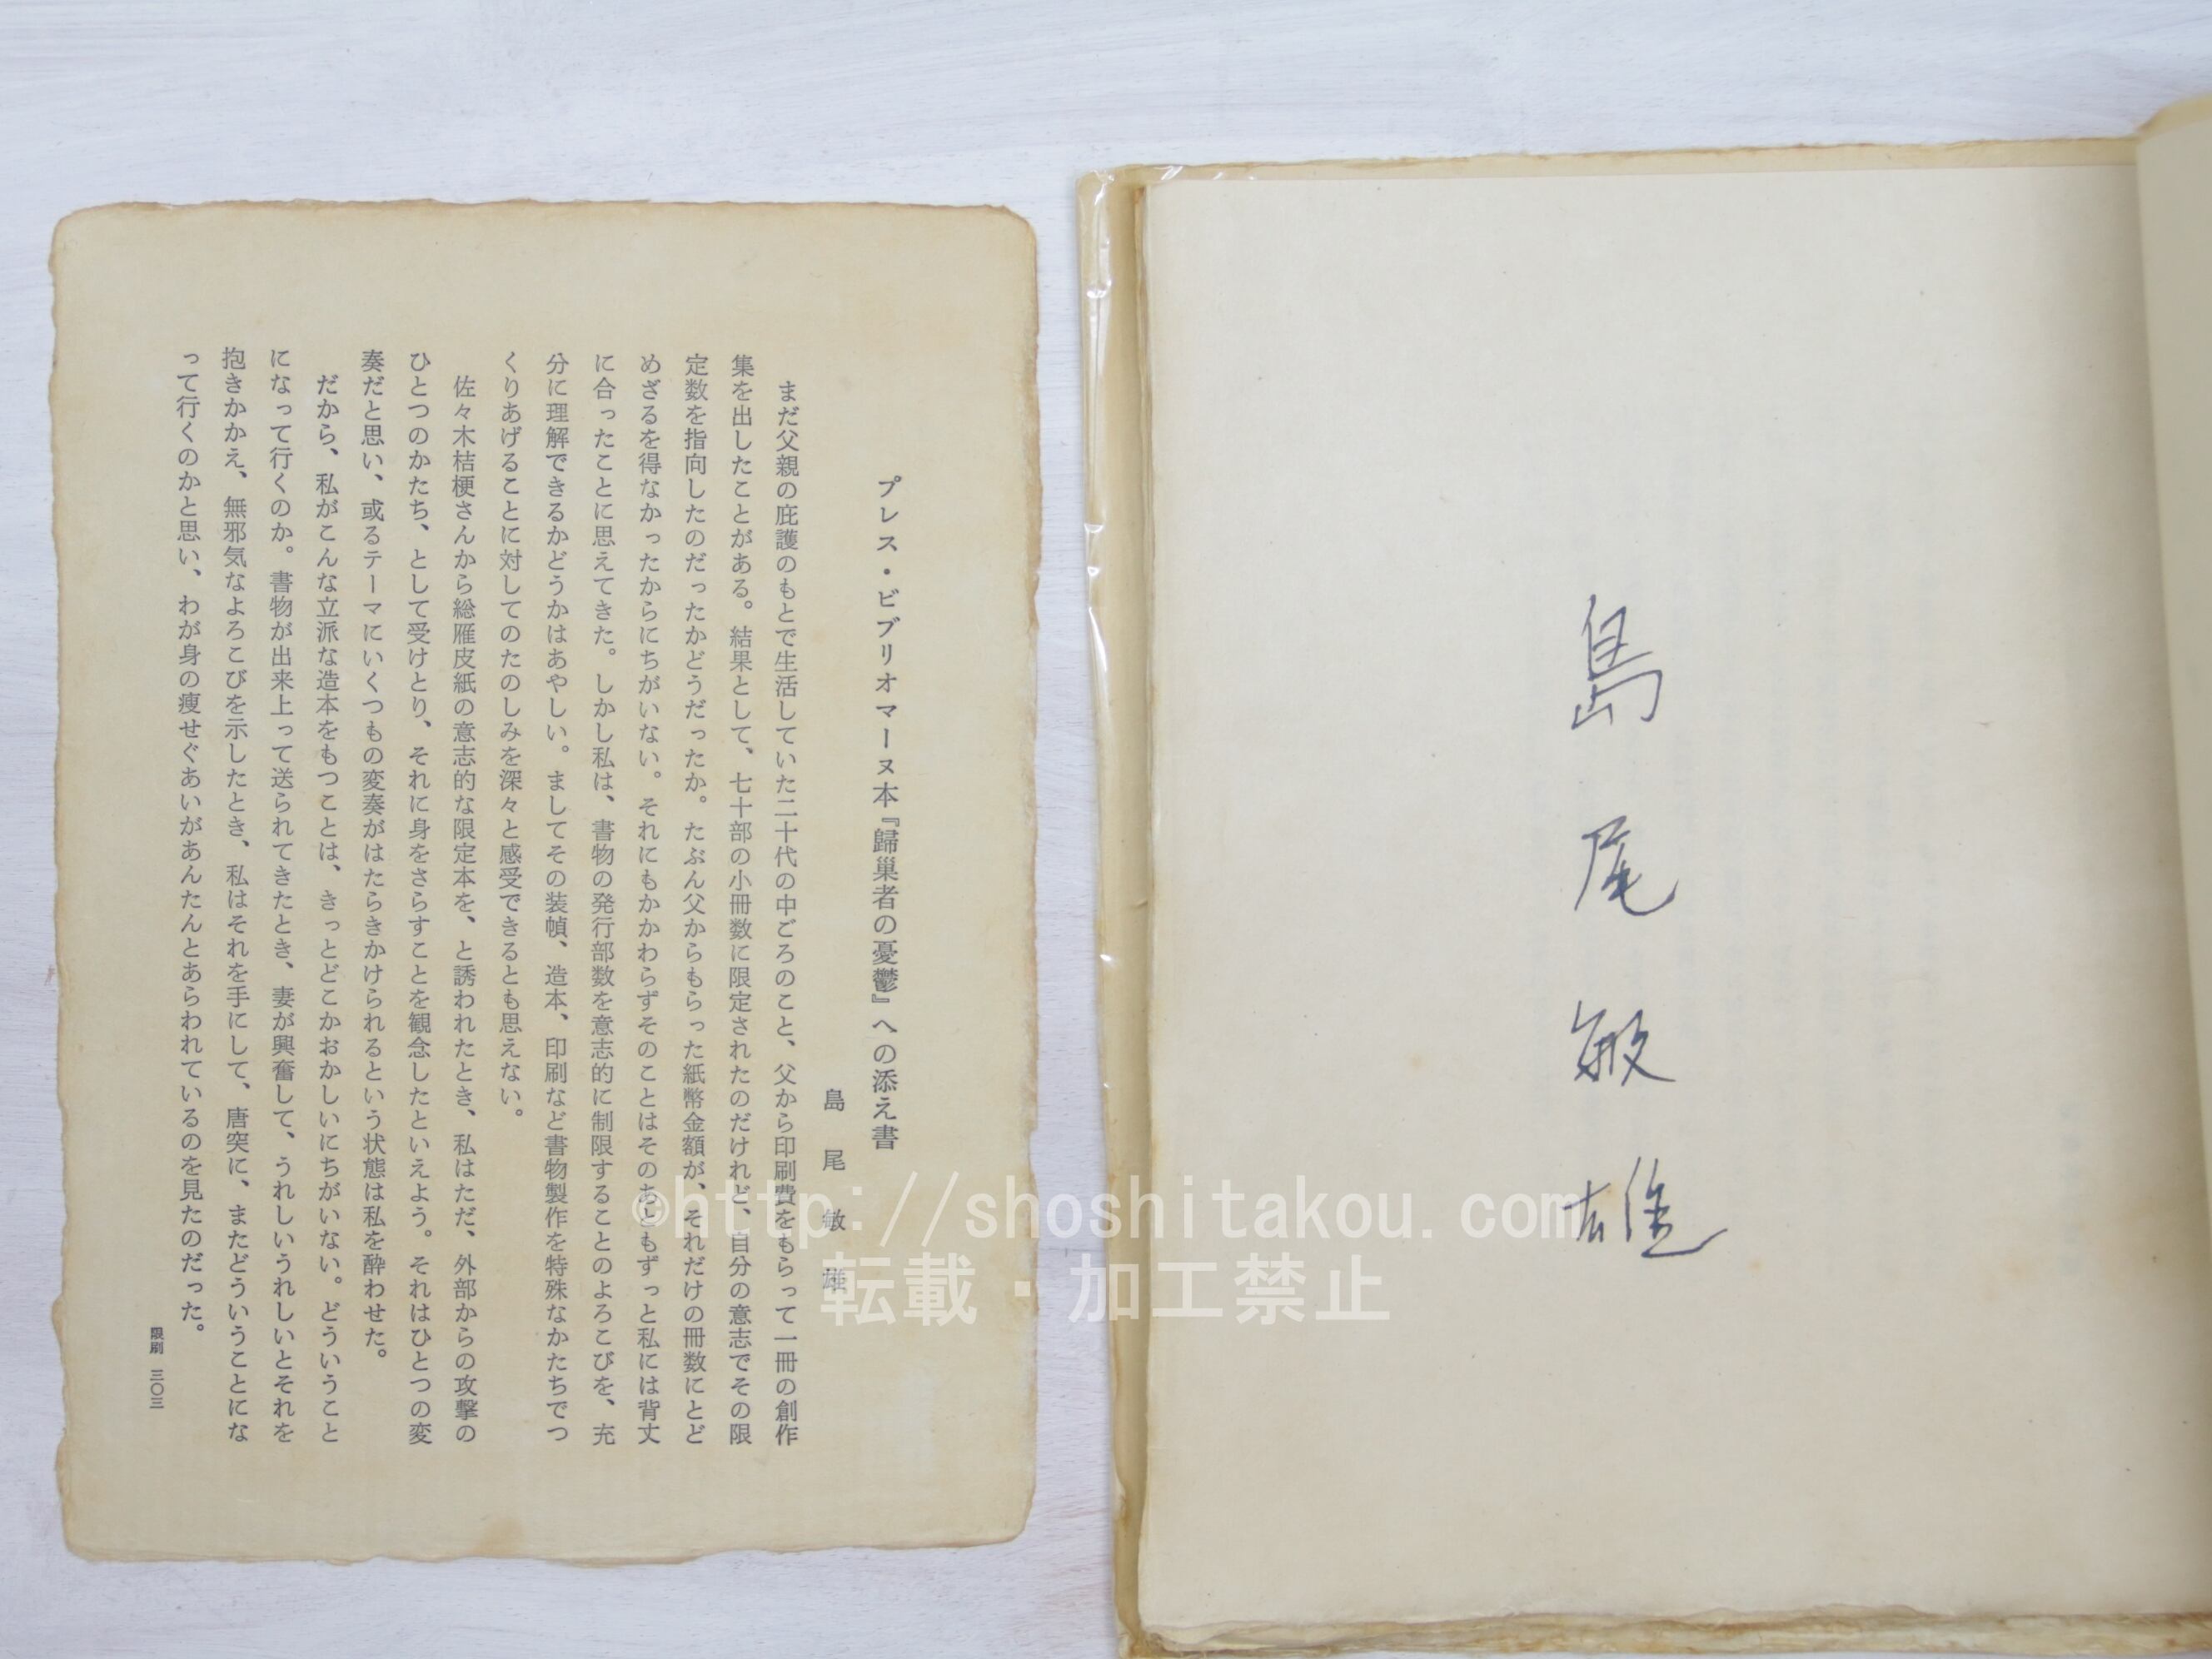 プレス・ビブリオマーヌ本『歸巣者の憂鬱』への添え書
島尾敏雄
まだ父親の庇護のもとで生活していた二十代の中ごろのこと、父から印刷費をもらって一冊の創作
集を出したことがある。結果として、七十部の小冊数に限定されたのだけれど、自分の意志でその限
定数を指向したのだったかどうだったか。たぶん父からもらった紙幣金額が、それだけの冊数にとど
めざるを得なかったからにちがいない。それにもかかわらずそのことはそのあともずっと私には背丈
に合ったことに思えてきた。しかし私は、書物の発行部数を意志的に制限することのよろこびを、充
分に理解できるかどうかはあやしい。ましてその装幀、造本、印刷など書物製作を特殊なかたちでつ
くりあげることに対してのたのしみを深々と感受できるとも思えない。
佐々木桔梗さんから総雁皮紙の意志的な限定本を、と誘われたとき、私はただ、外部からの攻撃の
ひとつのかたち、として受けとり、それに身をさらすことを観念したといえよう。それはひとつの変
奏だと思い、或るテーマにいくつもの変奏がはたらきかけられるという状態は私を酔わせた。
だから、私がこんな立派な造本をもつことは、きっとどこかおかしいにちがいない。どういうこと
になって行くのか。書物が出来上って送られてきたとき、妻が興奮して、うれしいうれしいとそれを
抱きかかえ、無邪気なよろこびを示したとき、私はそれを手にして、唐突に、またどういうことにな
って行くのかと思い、わが身の痩せぐあいがあんたんとあらわれているのを見たのだった。
限刷 三〇三
島尾敏雄
©http://shoshitakou.com
転載・加工禁止